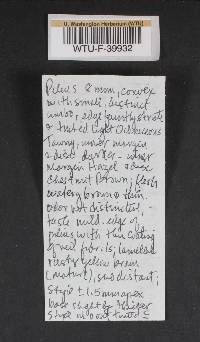 U. Washington Herbarium (WTU)
WTU-F-39932
Pileus 8 mm, convex
with small, distinct
umbo, edge faintly striate
& tinted Light Ochraceous
Tawny, inner margin
& disc darker - inner
margin Hazel & disc
Chestnut Brown; flesh
watery brown & thin.
odor not distinctive, -
taste mild. edge of
pileus with thin coating
of veil fibrils; lamellae
rusty yellow brown
(mature), subdistant;
stipe ± 1.5 mm apex
base slightly thicker
stipe